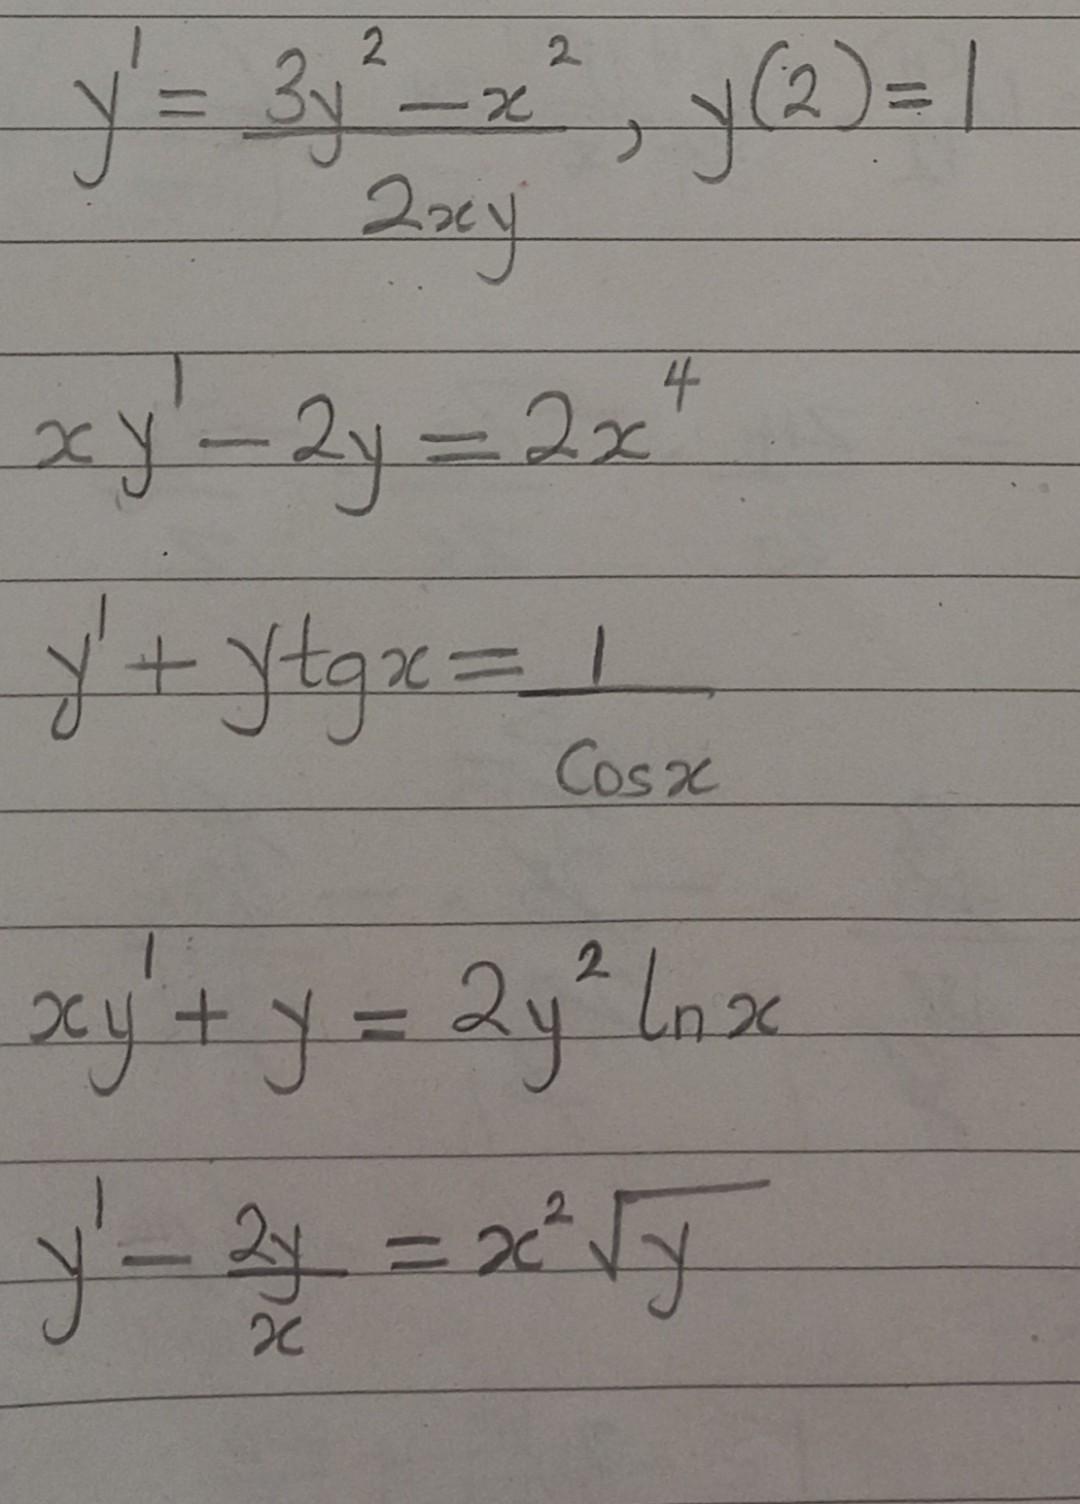 y' = (3y² − x²)/(2xy), y(2) = 1
xy' − 2y = 2x⁴
y' + ytgx = 1/(cosx)
xy' + y = 2y² ln x
y' − 2y/x = x²√y